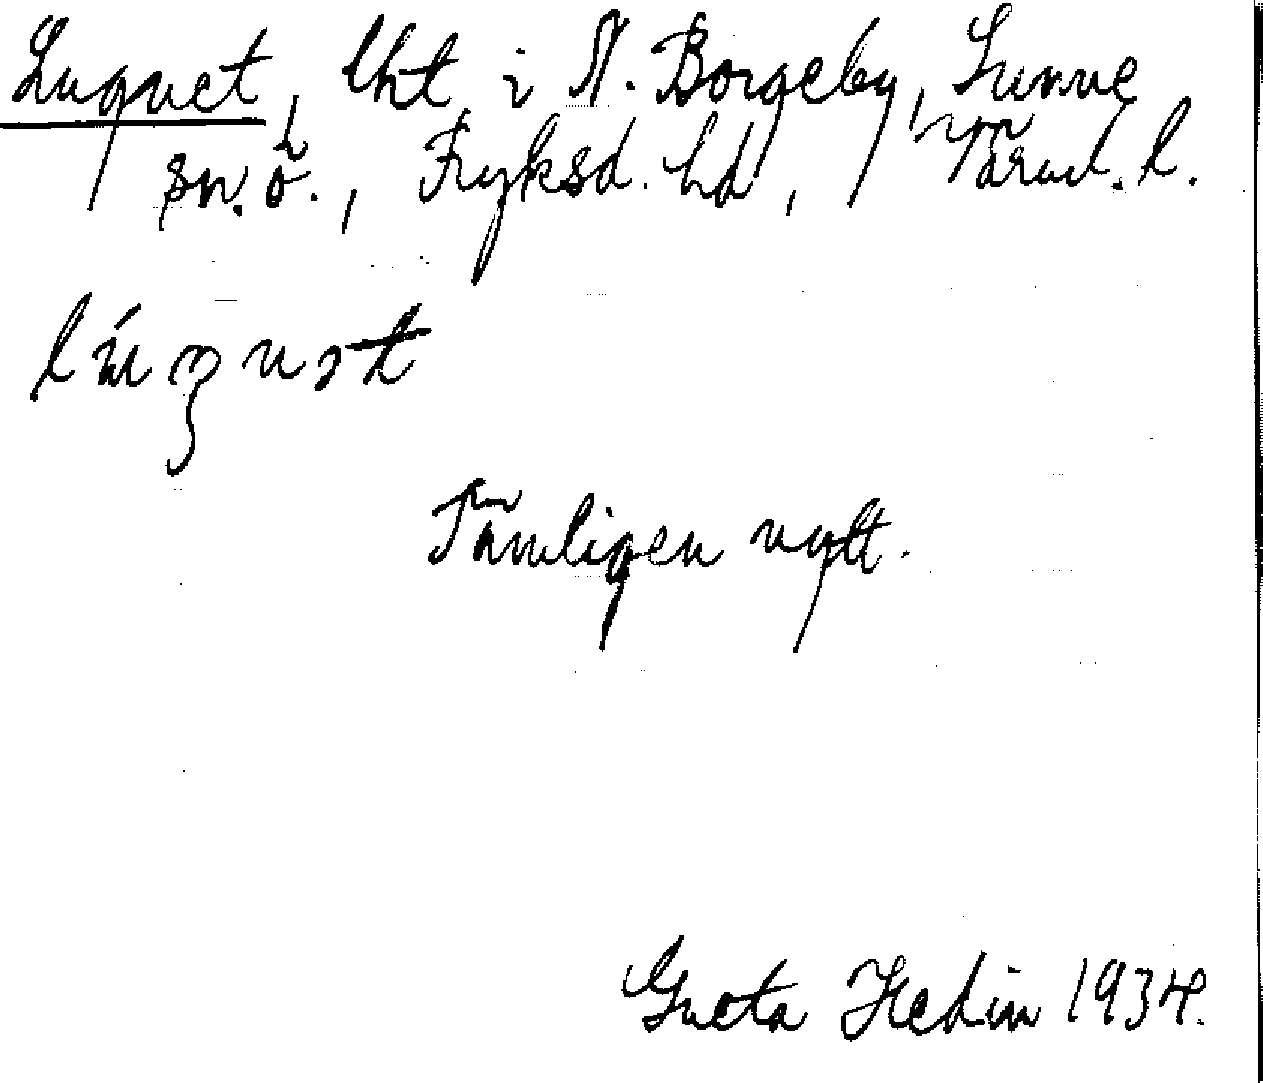 Lugnet, lht i N. Borgeby, Sunne
sn. ö., Fryksd. hd, Värml. l.
Tämligen nytt.
Greta Hedin 1934.